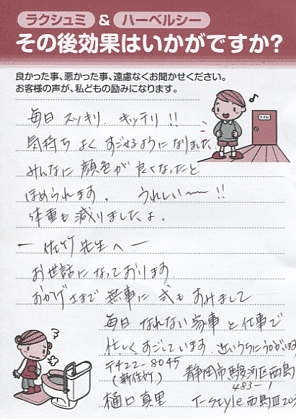 ラクシュミ & ハーベルシー
その後効果はいかがですか?
良かった事、悪かった事、遠慮なくお聞かせください。
お客様の声が、私どもの励みになります。
毎日 スッキリ キッチリ!!
気持ち よく すごせるようになりました
みんなに 顔色が 良くなったと
ほめられます。 うれしい〜〜!!
体重も減りましたよ。
ー 佐竹先生へ ー
お世話になっております
おかげさまで 無事に 式もすみまして
毎日 なれない家事と仕事で
忙しくすごしています。近いうちにうかがいます
〒422-8045
(新住所) 静岡市駿河区西島
483-1
樋口真里 T-style西島Ⅲ 205